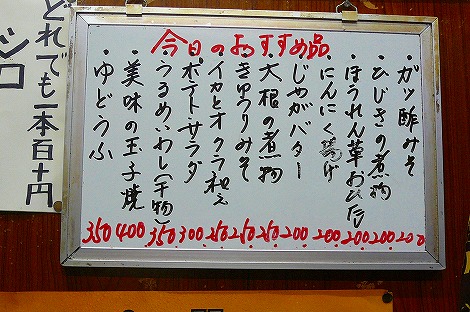 今日のおすすめ品
・ガツ酢みそ 200
・ひじきの煮物 200
・ほうれん草おひたし 200
・にんにく揚げ 200
・じゃがバター 200
・大根の煮物 250
・きゅうりみそ 250
・イカとオクラ和え 250
・ポテトサラダ 300
・うるめいわし(干物) 350
・美味の玉子焼 400
・ゆどうふ 350
どれでも一本百十円
シロ